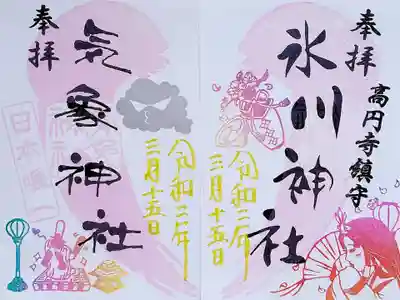 奉拝
高円寺鎮守
氷川神社
令和二年
三月十五日
奉拝
気象神社
令和二年
三月十五日
日本唯一